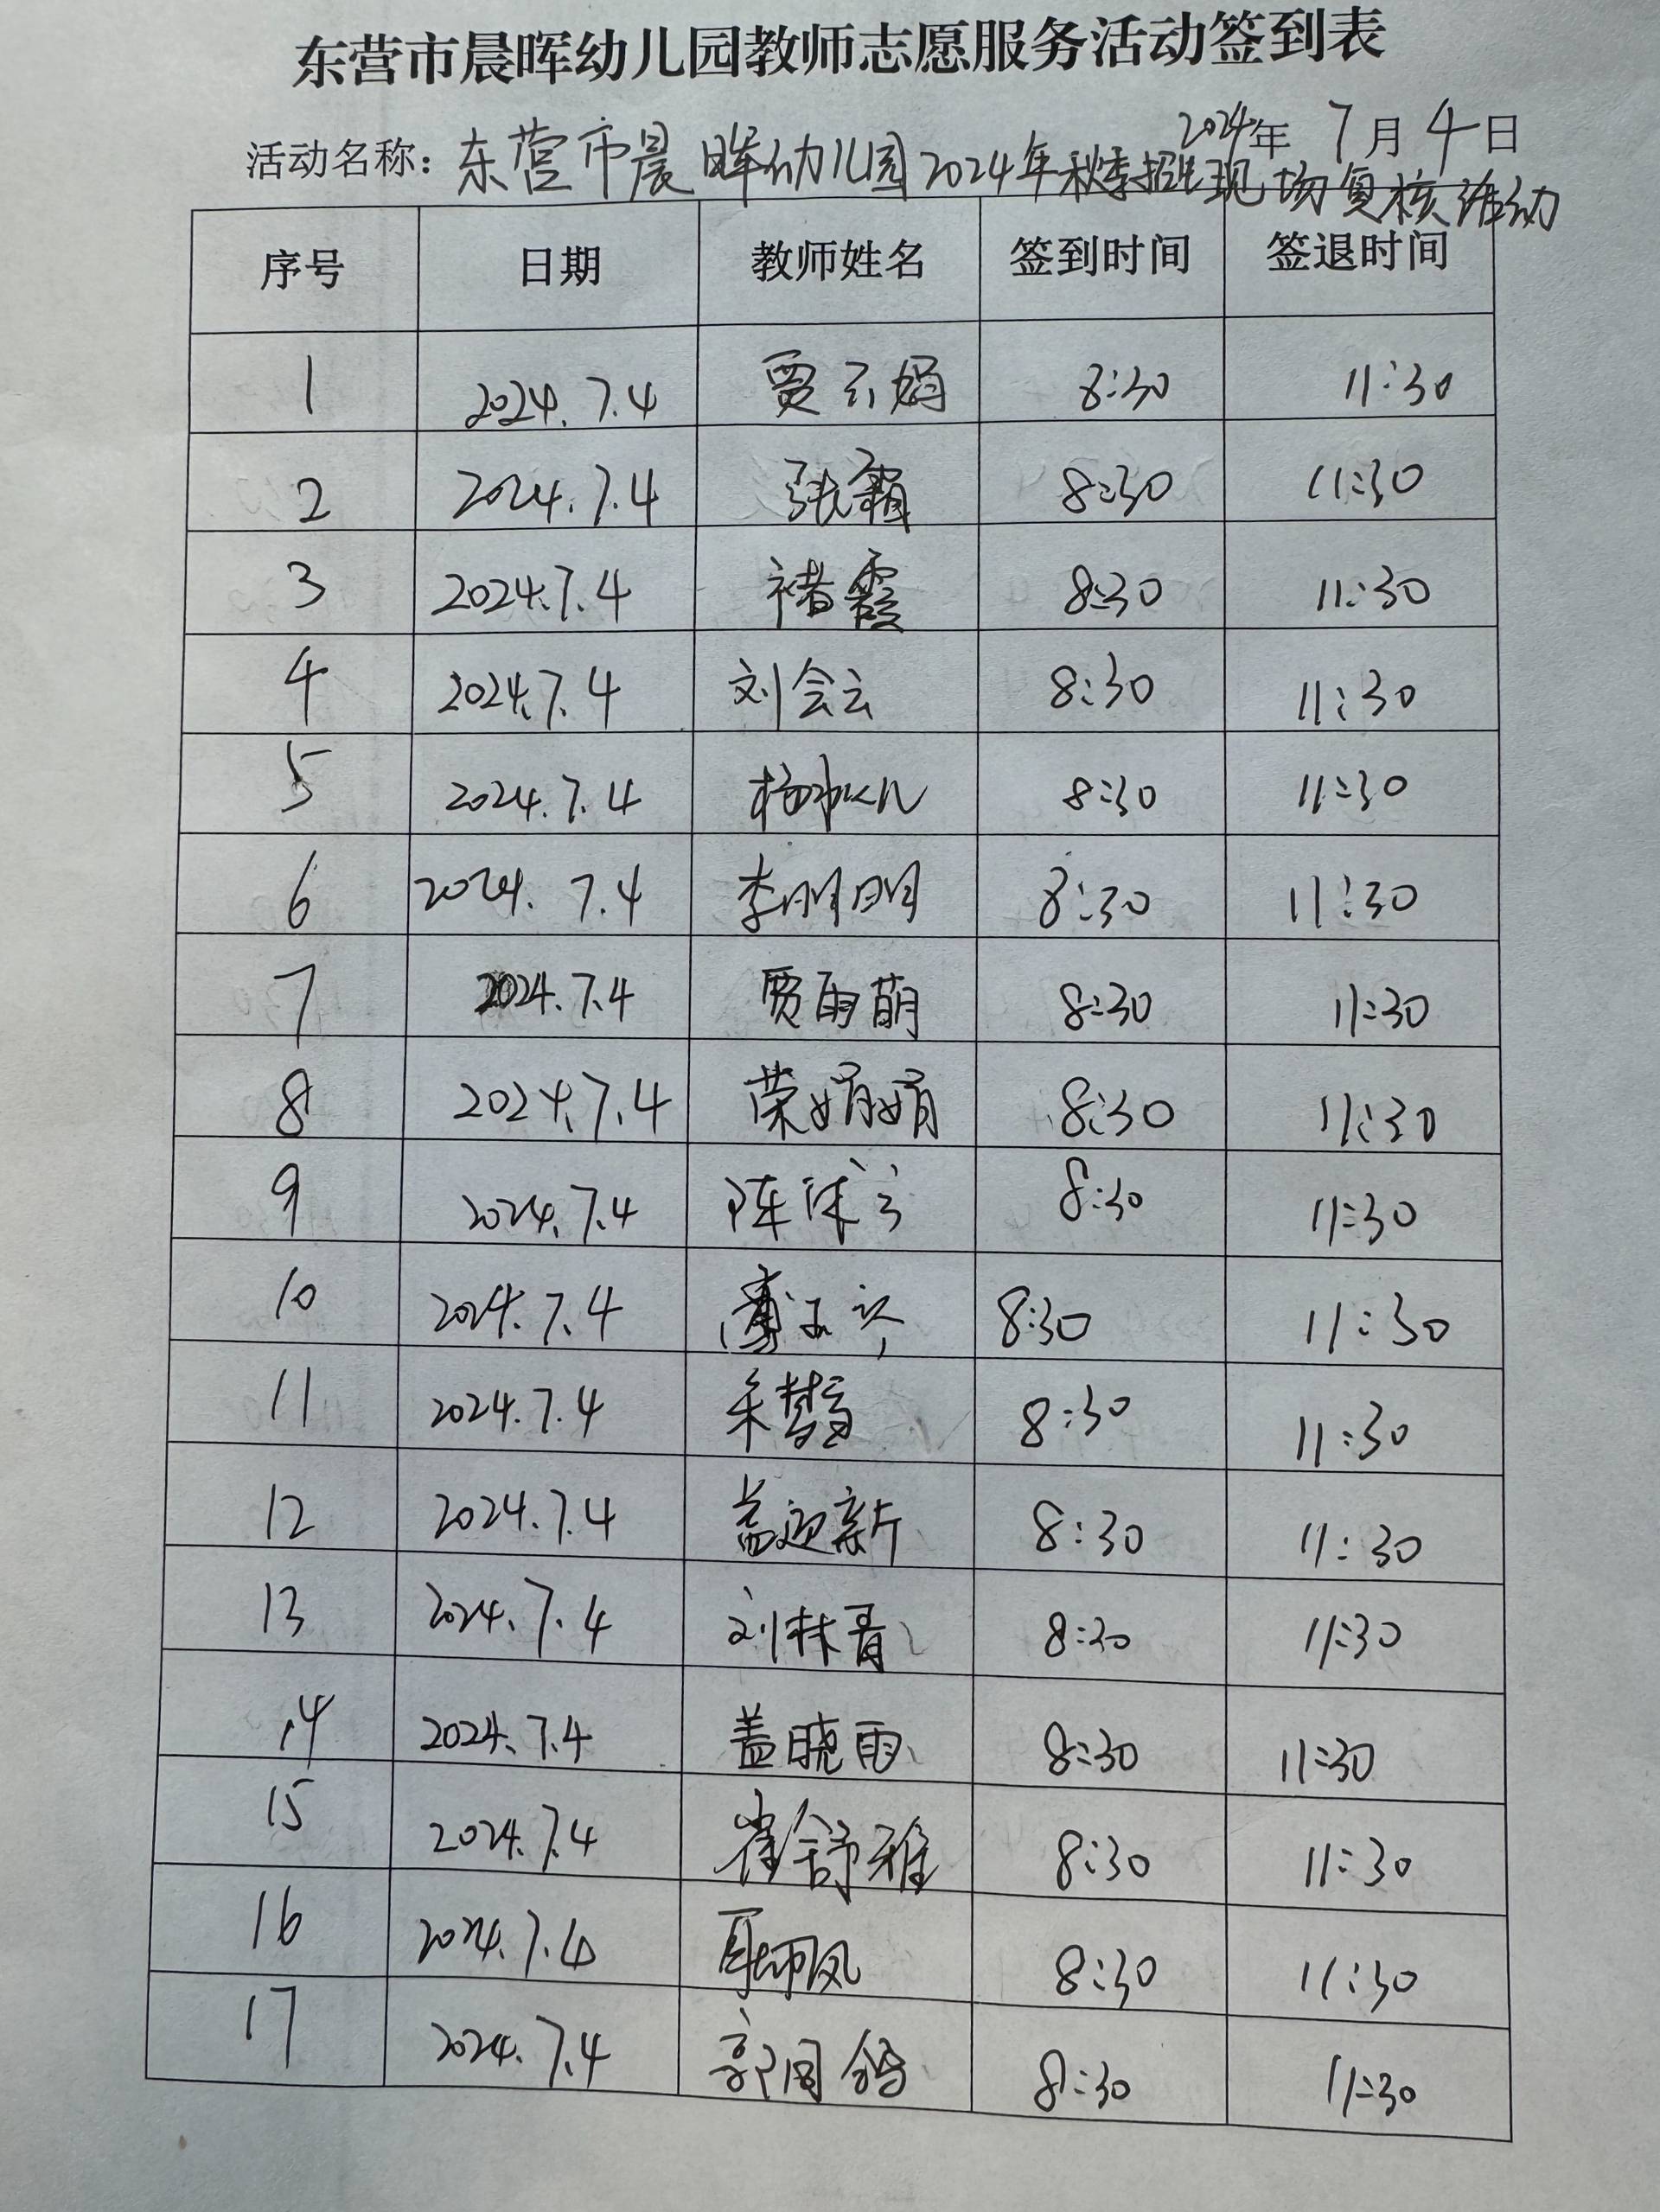 东营市晨晖幼儿园教师志愿服务活动签到表
2024年 7月 4日
活动名称：东营市晨晖幼儿园2024年秋季招生现场复核活动
序号 日期 教师姓名 签到时间 签退时间
1 2024.7.4 贾云娟 8:30 11:30
2 2024.7.4 张霜 8:30 11:30
3 2024.7.4 褚霞 8:30 11:30
4 2024.7.4 刘会云 8:30 11:30
5 2024.7.4 8:30 11:30
6 2024.7.4 李明明 8:30 11:30
7 2024.7.4 贾雨萌 8:30 11:30
8 2024.7.4 荣娟娟 8:30 11:30
9 2024.7.4 陈 8:30 11:30
10 2024.7.4 8:30 11:30
11 2024.7.4 朱梦雪 8:30 11:30
12 2024.7.4 盖迎新 8:30 11:30
13 2024.7.4 刘林青 8:30 11:30
14 2024.7.4 盖晓雨 8:30 11:30
15 2024.7.4 崔舒雅 8:30 11:30
16 2024.7.4 8:30 11:30
17 2024.7.4 8:30 11:30